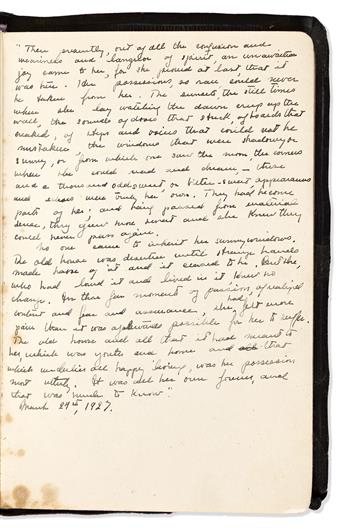 "Then presently, out of all the confusion and
weariness and languor of spirit, an unawaited
joy came to her, for she found at last that it
was hers. The possessions, so real could never
be taken from her. The sunsets the still times
when she lay watching the dawn creep up the
wall, the sounds of doors that stuck, of boards that
creaked, of steps and voices that could not be
mistaken, the windows that were shadowy or
sunny, or from which one saw the moon, the corners
where one could read and dream — these
and a thousand odd, sweet, or bitter-sweet appearances
and echoes were truly her own. They had become
parts of her, and being passed from material
sense, they grew more sweet and she knew they
could never pass again.
No one came to inherit her sunny windows.
The old house was desolate until strange hands
made havoc of it and it ceased to be. But she
who had loved it and lived in it knew no
change. In those few moments of passion, of realized
content and fear and assurance, she felt more
pain than it was afterwards possible for her to suffer.
The old house and all that it had meant to
her, which was youth and home and all that
which underlies all happy living, was her possession
most utterly. It was all her own forever, and
that was much to know."
March 29th, 1927.